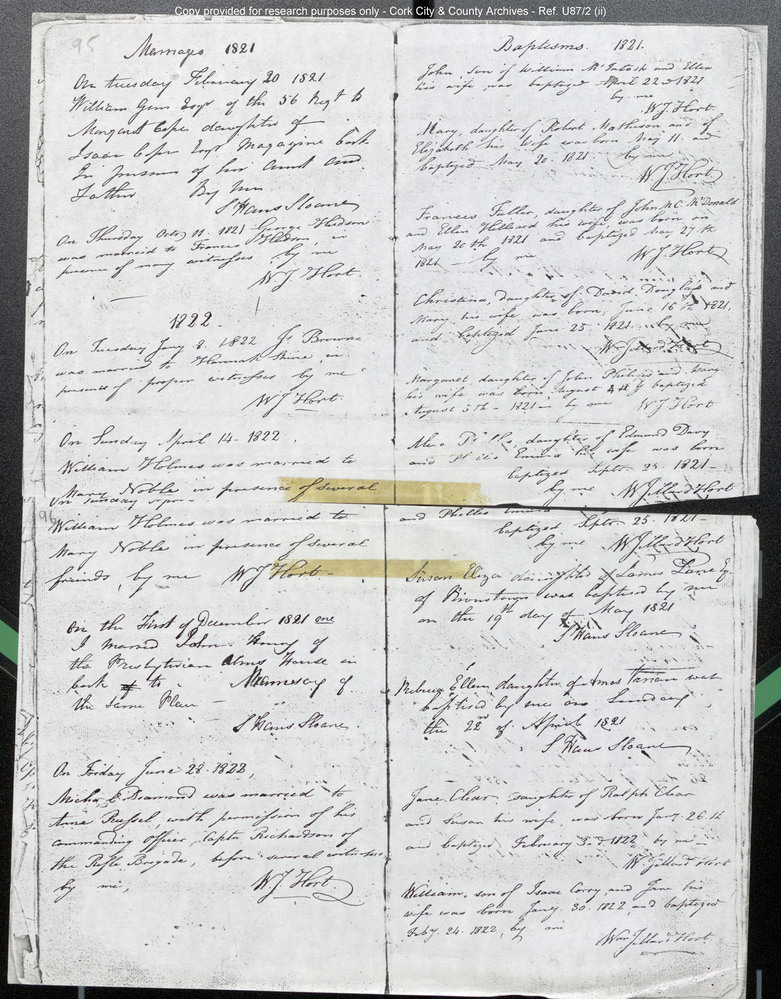 Copy provided for research purposes only - Cork City & County Archives - Ref. U87/2 (ii)
95
Marriages 1821
On tuesday February 20 1821
William Gun Esqr of the 56 Regt to
Margaret Cope daughter of
Isaac Cope Esqr Magazine Cork
In presence of her Aunt and
Father By me
S Hans Sloane
On Thursday Octr 11. 1821 George Hudson
was married to Frances Hudson, in
presence of many witnesses by me
W J Hort
1822
On Tuesday Jany 8. 1822 Js Browne
was married to Hannah Shine in
presence of proper witnesses by me
W J Hort
On Sunday April 14. 1822.
William Holmes was married to
Mary Noble in presence of several
On Sunday
96
William Holmes was married to
Mary Noble in presence of several
friends, by me W J Hort
On the First of December 1821
I married John Henry of
the Presbyterian Alms House in
Cork to Mary of
the Same Place
S Hans Sloane
On Friday June 28. 1822,
Michl Esmond was married to
Anne Russel with permission of his
commanding officer, Captn Richardson of
the Rifle Brigade, before several witnesses
by me, W. J. Hort.
Baptisms. 1821.
John, son of William McIntosh and Ellen
his wife was baptized April 22d 1821
by me
W J Hort
Mary, daughter of Robert Matheson and of
Elizabeth his wife was born May 11. and
baptized May 20. 1821 by me
W J Hort
Frances Fuller, daughter of John McC. McDonald
and Ellen Hilliard his wife was born on
May 20th 1821 and baptized May 27th
1821 by me W J Hort
Christina, daughter of David Douglass and
Mary his wife was born June 16th 1821.
and baptized June 25. 1821. by me
W Jillard Hort
Margaret daughter of John Philips and Mary
his wife was born August 4th & baptized
August 5th - 1821 - by me W J Hort
daughter of Edmund Davy
and Phillis his wife was born
baptized Septr 25. 1821
by me W Jillard Hort
and Phillis
baptized Septr 25. 1821
by me W Jillard Hort
Susan Eliza daughter of James Lane Eqr
of Riverstown was baptised by me
on the 19th day of May 1821
S Hans Sloane
Ellen daughter of Amos was
baptised by me on Sunday
the 22nd of April 1821
S Hans Sloane
Jane Clear, daughter of Ralph Clear
and Susan his wife, was born Jany. 26th
and baptized February 3d 1822 by me
W Jillard Hort
William, son of Isaac Corry and Jane his
wife was born Jany 30. 1822, and baptized
Feby. 24. 1822, by me
Wm Jillard Hort